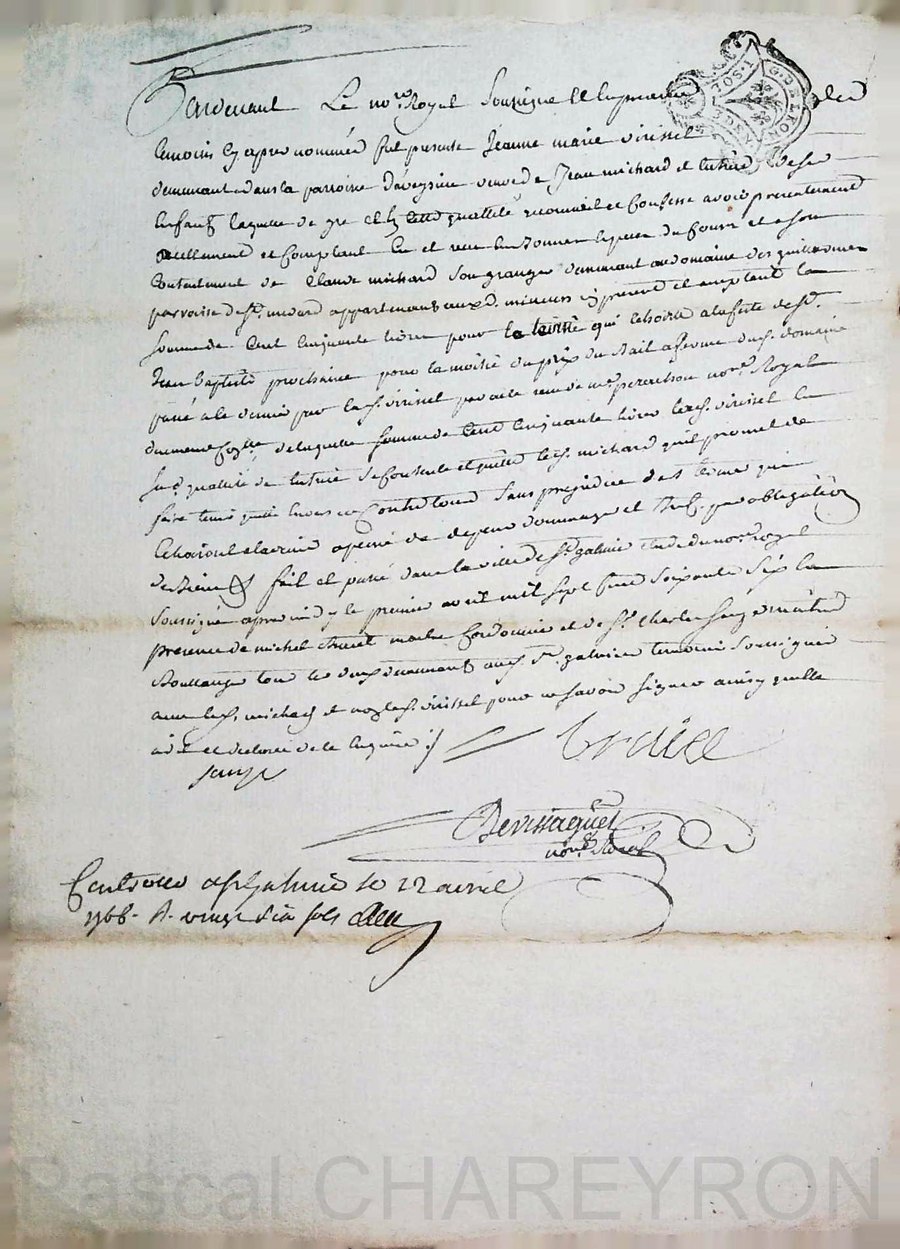 Pardevant Le no.re Royal Soussigne Et En presence des
temoins Cy apres nommés fut presente Jeanne marie virissel
demeurant dans la parroisse D'aveysieu veuve de Jean michard et tutrice de ses
Enfants laquelle de gre et En Cette qualitté reconnoit et Confesse avoir presentement
reellement et Comptant Eu et receu En Bonnes Especes du Cours et a son
Contentement de Claude michard son granger demeurant au domaine des
parroisse de St medard appartenant auxd. mineurs Cy present et acceptant la
somme de Cent Cinquante livres pour le terme qui Echoira a la feste de St
Jean Baptiste prochaine pour la moitié du prix du Bail a ferme dud. domaine
passé a ce dernier par lad. virissel par acte receu de me no.re Royal
de laquelle somme de Cent Cinquante livres lad. virissel En
sad. qualité de tutrice se Contente et quitte led. michard qu'il promet de
faire tenir quitte Envers et Contre tous sans prejudice des terme qui
Echairont a l'avenir a peine de depens dommage et par obligation
de Biens fait et passé dans la ville de St galmier Etude du no.re royal
soussigné apres midy le premier avril mil sept Cent soixante six En
presence de michel maitre Cordonnier et de Sr Charles maitre
Boullanger tous les deux demeurants aud. St galmier temoins soussignés
avec led. michard et non lad. virissel pour ne savoir signer ainsy qu'elle
a dit et declaré de ce Enquise
no.re Roial
Controllé a St Galmier le 22 avril
1766. R. vingt six sols
G. D. LYON
Pascal CHAREYRON